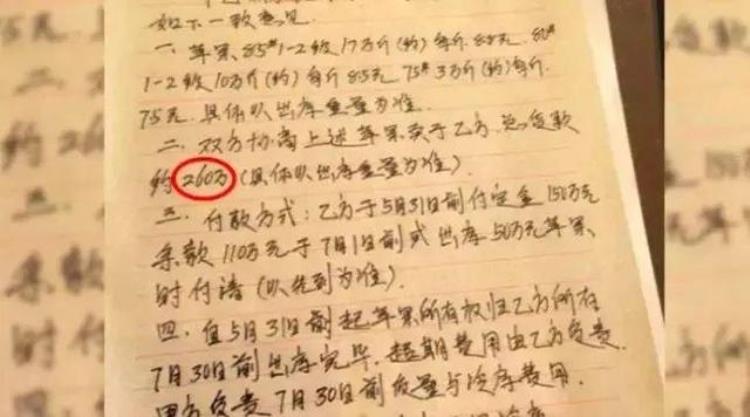 如下一致意见
一、苹果、85#1-2级17万斤(约)每斤8.8元、80#
1-2级10万斤(约)每斤8.5元 75#3万斤(约)每斤.
75元.具体以出库重量为准.
二、双方协商上述苹果卖于乙方,总货款
约260万(具体以出库重量为准).
三、付款方式:乙方于5月31日前付定金150万元
余款110万元于7月1日前或出库50万元苹果
时付清(以先到为准).
四、自5月31日前起苹果所有权归乙方所有
7月30日前出库完毕.超期费用由乙方负责.
甲方负责7月30日前质量与冷库费用.